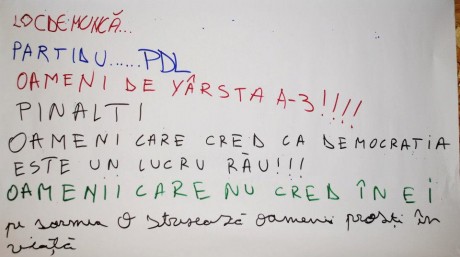 LOCDEMUNCĂ...
PARTIDU......PDL
OAMENI DE VÂRSTA A-3!!!!
PINALTI
OAMENI CARE CRED CA DEMOCRAȚIA
ESTE UN LUCRU RĂU!!!
OAMENII CARE NU CRED ÎN EI
pe O stresează oameni proști în
viață